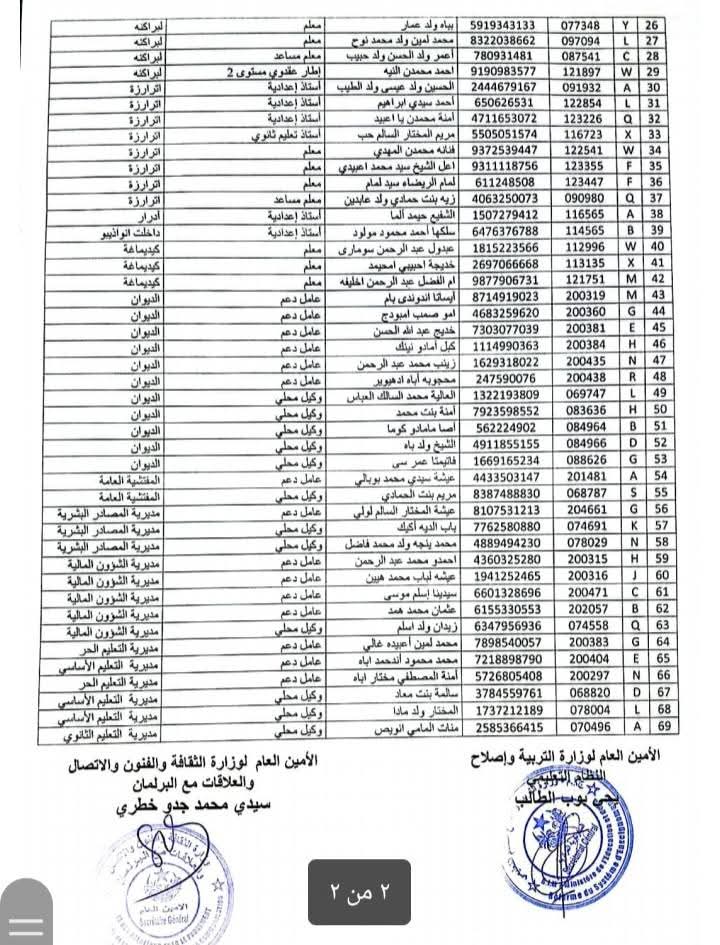 26 Y 077348 5919343133 بباه ولد عمار معلم لبراكنه
27 L 097094 8322038662 محمد لمين ولد محمد نوح معلم لبراكنه
28 C 087541 780931481 أعمر ولد الحسن ولد حبيب معلم مساعد لبراكنه
29 W 121897 9190983577 احمد محمدن النيه إطار عقدوي مستوى 2 لبراكنه
30 A 091932 2444679167 الحسين ولد عيسى ولد الطيب أستاذ إعدادية اترارزة
31 L 122854 650626531 أحمد سيدي ابراهيم أستاذ إعدادية اترارزة
32 Q 123226 4711653072 آمنة محمدن يا اعبيد أستاذ إعدادية اترارزة
33 X 116723 5505051574 مريم المختار السالم حب أستاذ تعليم ثانوي اترارزة
34 W 122541 9372539447 فنانه محمدن المهدي معلم اترارزة
35 F 123355 9311118756 اعل الشيخ سيد محمد اعبيدي معلم اترارزة
36 F 123447 611248508 لمام الريضاء سيد لمام معلم اترارزة
37 Q 090980 4063250073 زيه بنت حمادي ولد عابدين معلم مساعد اترارزة
38 A 116565 1507279412 الشفيع حيمد ألما أستاذ إعدادية أدرار
39 B 114565 6476376788 سلكها أحمد محمود مولود أستاذ إعدادية داخلت انواذيبو
40 W 112996 1815223566 عبدول عبد الرحمن سومارى معلم كيديماغة
41 X 113135 2697066668 خديجة احبيبي امحيمد معلم كيديماغة
42 M 121751 9877906731 ام الفضل عبد الرحمن اخليفه معلم كيديماغة
43 M 200319 8714919023 أيساتا اندوندى بام عامل دعم الديوان
44 G 200360 4683259620 امو صمب امبودج عامل دعم الديوان
45 E 200381 7303077039 خديج عبد الله الحسن عامل دعم الديوان
46 H 200384 1114990363 كبل أمادو نينك عامل دعم الديوان
47 N 200435 1629318022 زينب محمد عبد الرحمن عامل دعم الديوان
48 R 200438 247590076 محجوبه أباه ادهيوير عامل دعم الديوان
49 L 069747 1322193809 العالية محمد السالك العباس وكيل محلي الديوان
50 H 083636 7923598552 آمنة بنت محمد وكيل محلي الديوان
51 B 084964 562224902 آصا مامادو كوما وكيل محلي الديوان
52 D 084966 4911855155 الشيخ ولد باه وكيل محلي الديوان
53 G 088626 1669165234 فاتيمتا عمر سى وكيل محلي الديوان
54 A 201481 4433503147 عيشة سيدي محمد بوبالي عامل دعم المفتشية العامة
55 S 068787 8387488830 مريم بنت الحمادي وكيل محلي المفتشية العامة
56 G 204661 8107531213 عيشة المختار السالم لولي عامل دعم مديرية المصادر البشرية
57 K 074691 7762580880 باب الديه أكيك وكيل محلي مديرية المصادر البشرية
58 N 078029 4889494230 محمد ينجه ولد محمد فاضل وكيل محلي مديرية المصادر البشرية
59 H 200315 4360325280 احمدو محمد عبد الرحمن عامل دعم مديرية الشؤون المالية
60 J 200316 1941252465 عيشه لباب محمد هيين عامل دعم مديرية الشؤون المالية
61 C 200471 6601328696 سيدينا إسلم موسى عامل دعم مديرية الشؤون المالية
62 B 202057 6155330553 عثمان محمد همد عامل دعم مديرية الشؤون المالية
63 Q 074558 6347956936 زيدان ولد اسلم وكيل محلي مديرية الشؤون المالية
64 G 200383 7898540057 محمد لمين أعبيده غالي عامل دعم مديرية التعليم الحر
65 E 200404 7218898790 محمد محمود أندحمد اباه عامل دعم مديرية التعليم الأساسي
66 N 200297 5726805408 آمنة المصطفي مختار اباه عامل دعم مديرية التعليم الحر
67 D 068820 3784559761 سالمة بنت معاد وكيل محلي مديرية التعليم الأساسي
68 L 078004 1737212189 المختار ولد مادا وكيل محلي مديرية التعليم الأساسي
69 A 070496 2585366415 منات المامي انويص وكيل محلي مديرية التعليم الثانوي
الأمين العام لوزارة التربية وإصلاح
النظام التعليمي
الأمين العام لوزارة الثقافة والفنون والاتصال
والعلاقات مع البرلمان
سيدي محمد جدو خطري
الأمين العام
Secrétaire Général
٢ من ٢